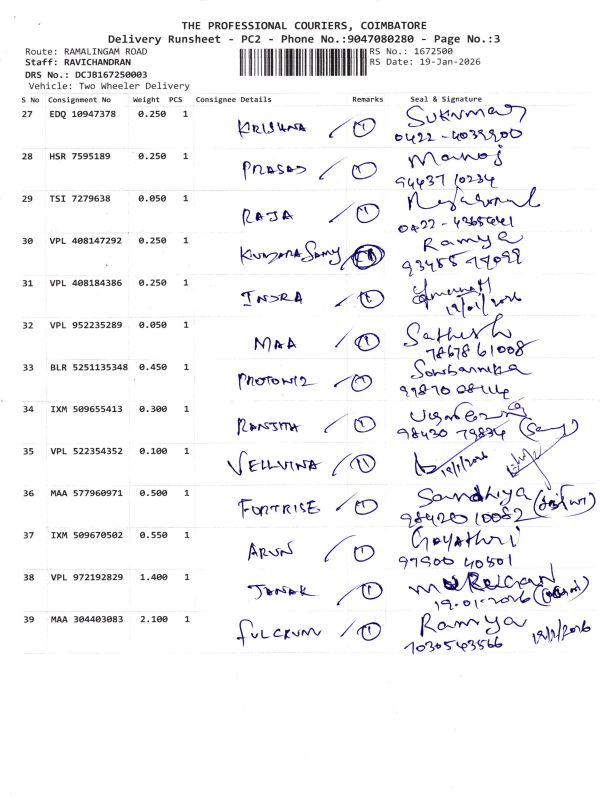 THE PROFESSIONAL COURIERS, COIMBATORE
Delivery Runsheet - PC2 - Phone No.:9047080280 - Page No.:3
Route: RAMALINGAM ROAD RS No.: 1672500
Staff: RAVICHANDRAN RS Date: 19-Jan-2026
DRS No.: DCJB167250003
Vehicle: Two Wheeler Delivery
S No Consignment No Weight PCS Consignee Details Remarks Seal & Signature
27 EDQ 10947378 0.250 1 KRISHNA 1 Sukumar
28 HSR 7595189 0.250 1 PRASAD 1 Manoj
94437 10234
29 TSI 7279638 0.050 1 RAJA 1
30 VPL 408147292 0.250 1 KUMARA Samy 1 Ramya
31 VPL 408184386 0.250 1 INDRA 1
19/01/2026
32 VPL 952235289 0.050 1 MAA 1 Sathish
78678 61008
33 BLR 5251135348 0.450 1 1 Sowbarnika
34 IXM 509655413 0.300 1 RANJITA 1
98430 79834
35 VPL 522354352 0.100 1 VELLVINA 1 19/1/2026
36 MAA 577960971 0.500 1 FORTRISE 1 Sandhiya
98420 10082
37 IXM 509670502 0.550 1 ARUN 1 Gayathri
97900 40501
38 VPL 972192829 1.400 1 JANAK 1
19.01.2026
39 MAA 304403083 2.100 1 FULCRUM 1 Ramya
7030543566 19/1/2026